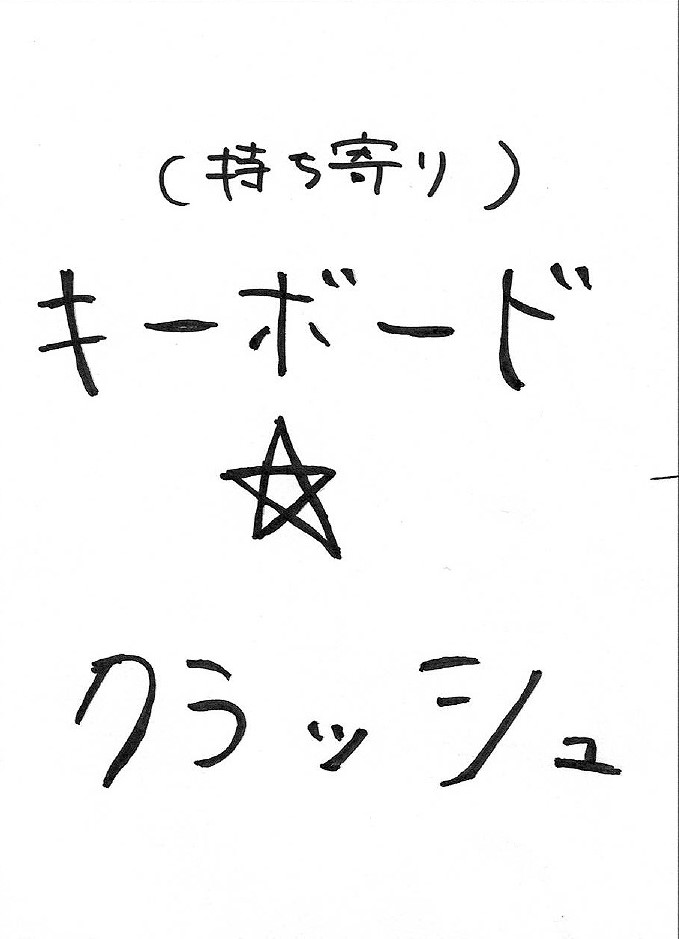 (持ち寄り)
キーボード
☆
クラッシュ